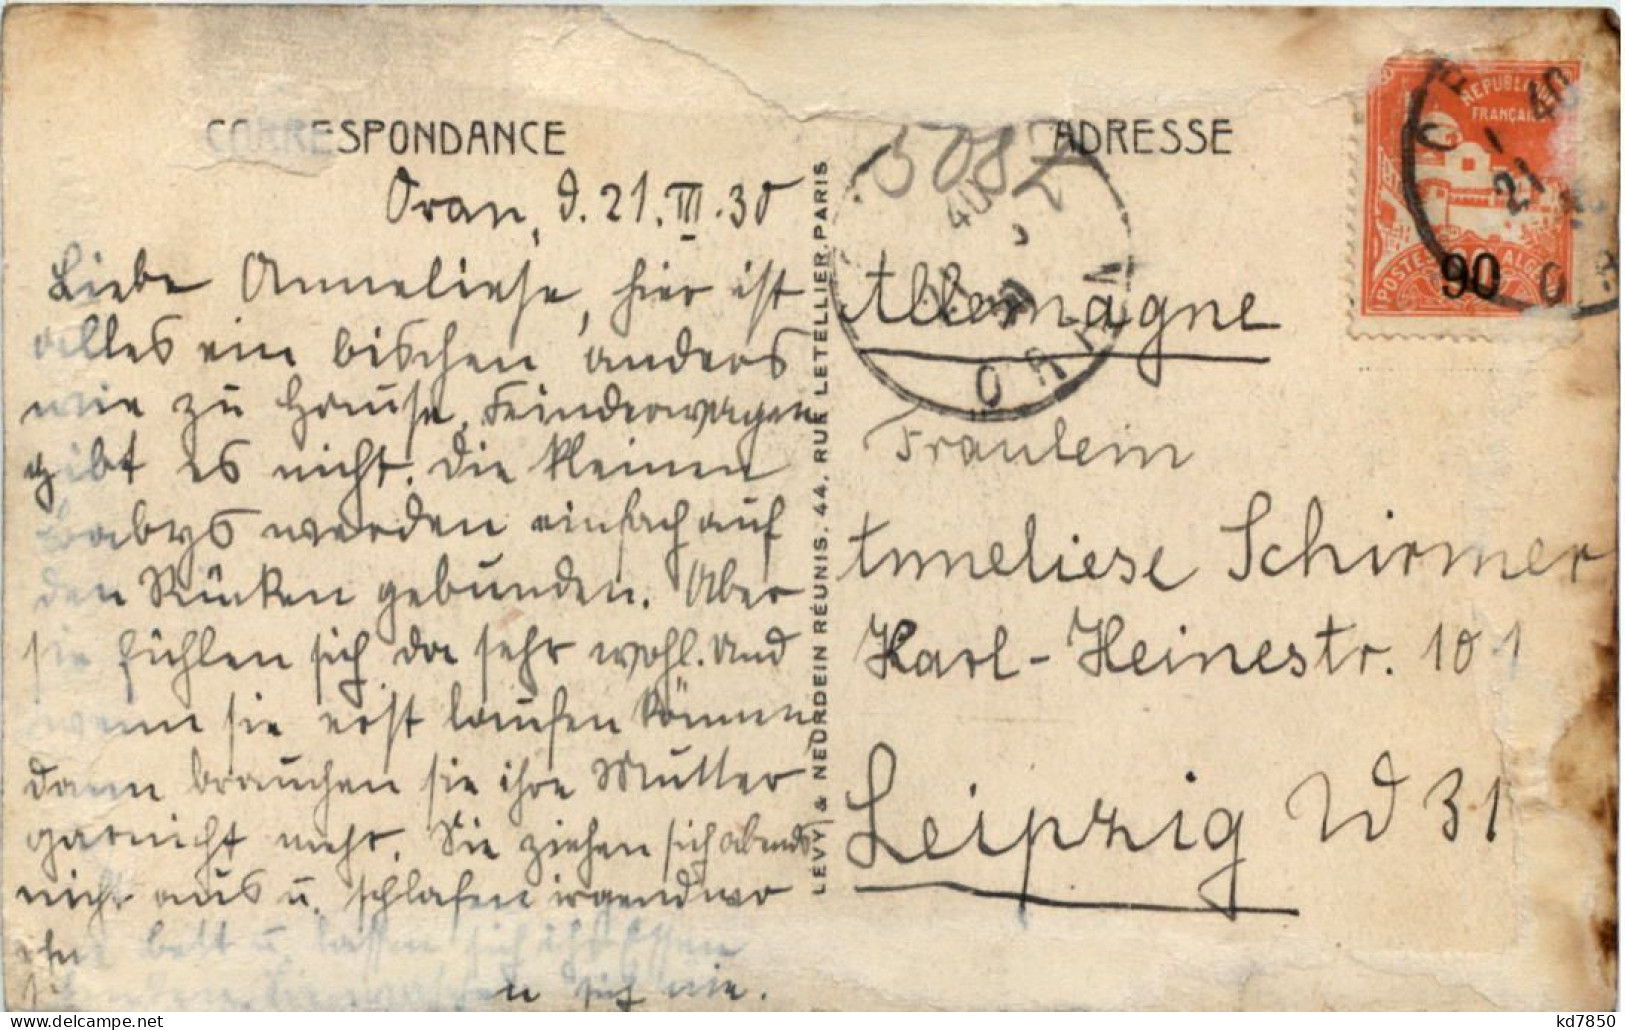 CORRESPONDANCE
ADRESSE
5087
Oran, d. 21. III. 30
Liebe Anneliese, hier ist
alles ein bischen anders
wie zu Hause, Kinderwagen
gibt es nicht. Die kleinen
Babys werden einfach auf
den Rücken gebunden. Aber
sie fühlen sich da sehr wohl. Und
wenn sie erst laufen können
dann brauchen sie ihre Mutter
garnicht mehr. Sie ziehen sich abends
nicht aus u. schlafen irgendwo
ohne Bett u. lassen sich ihr Essen
sich nie.
LEVY & NEURDEIN RÉUNIS, 44, RUE LETELLIER, PARIS
Allemagne
Fräulein
Anneliese Schirmer
Karl-Heinestr. 101
Leipzig W 31
REPUBLIQUE
FRANÇAISE
POSTES ALGERIE
90
ORAN
21
40
ORAN
40
kd7850